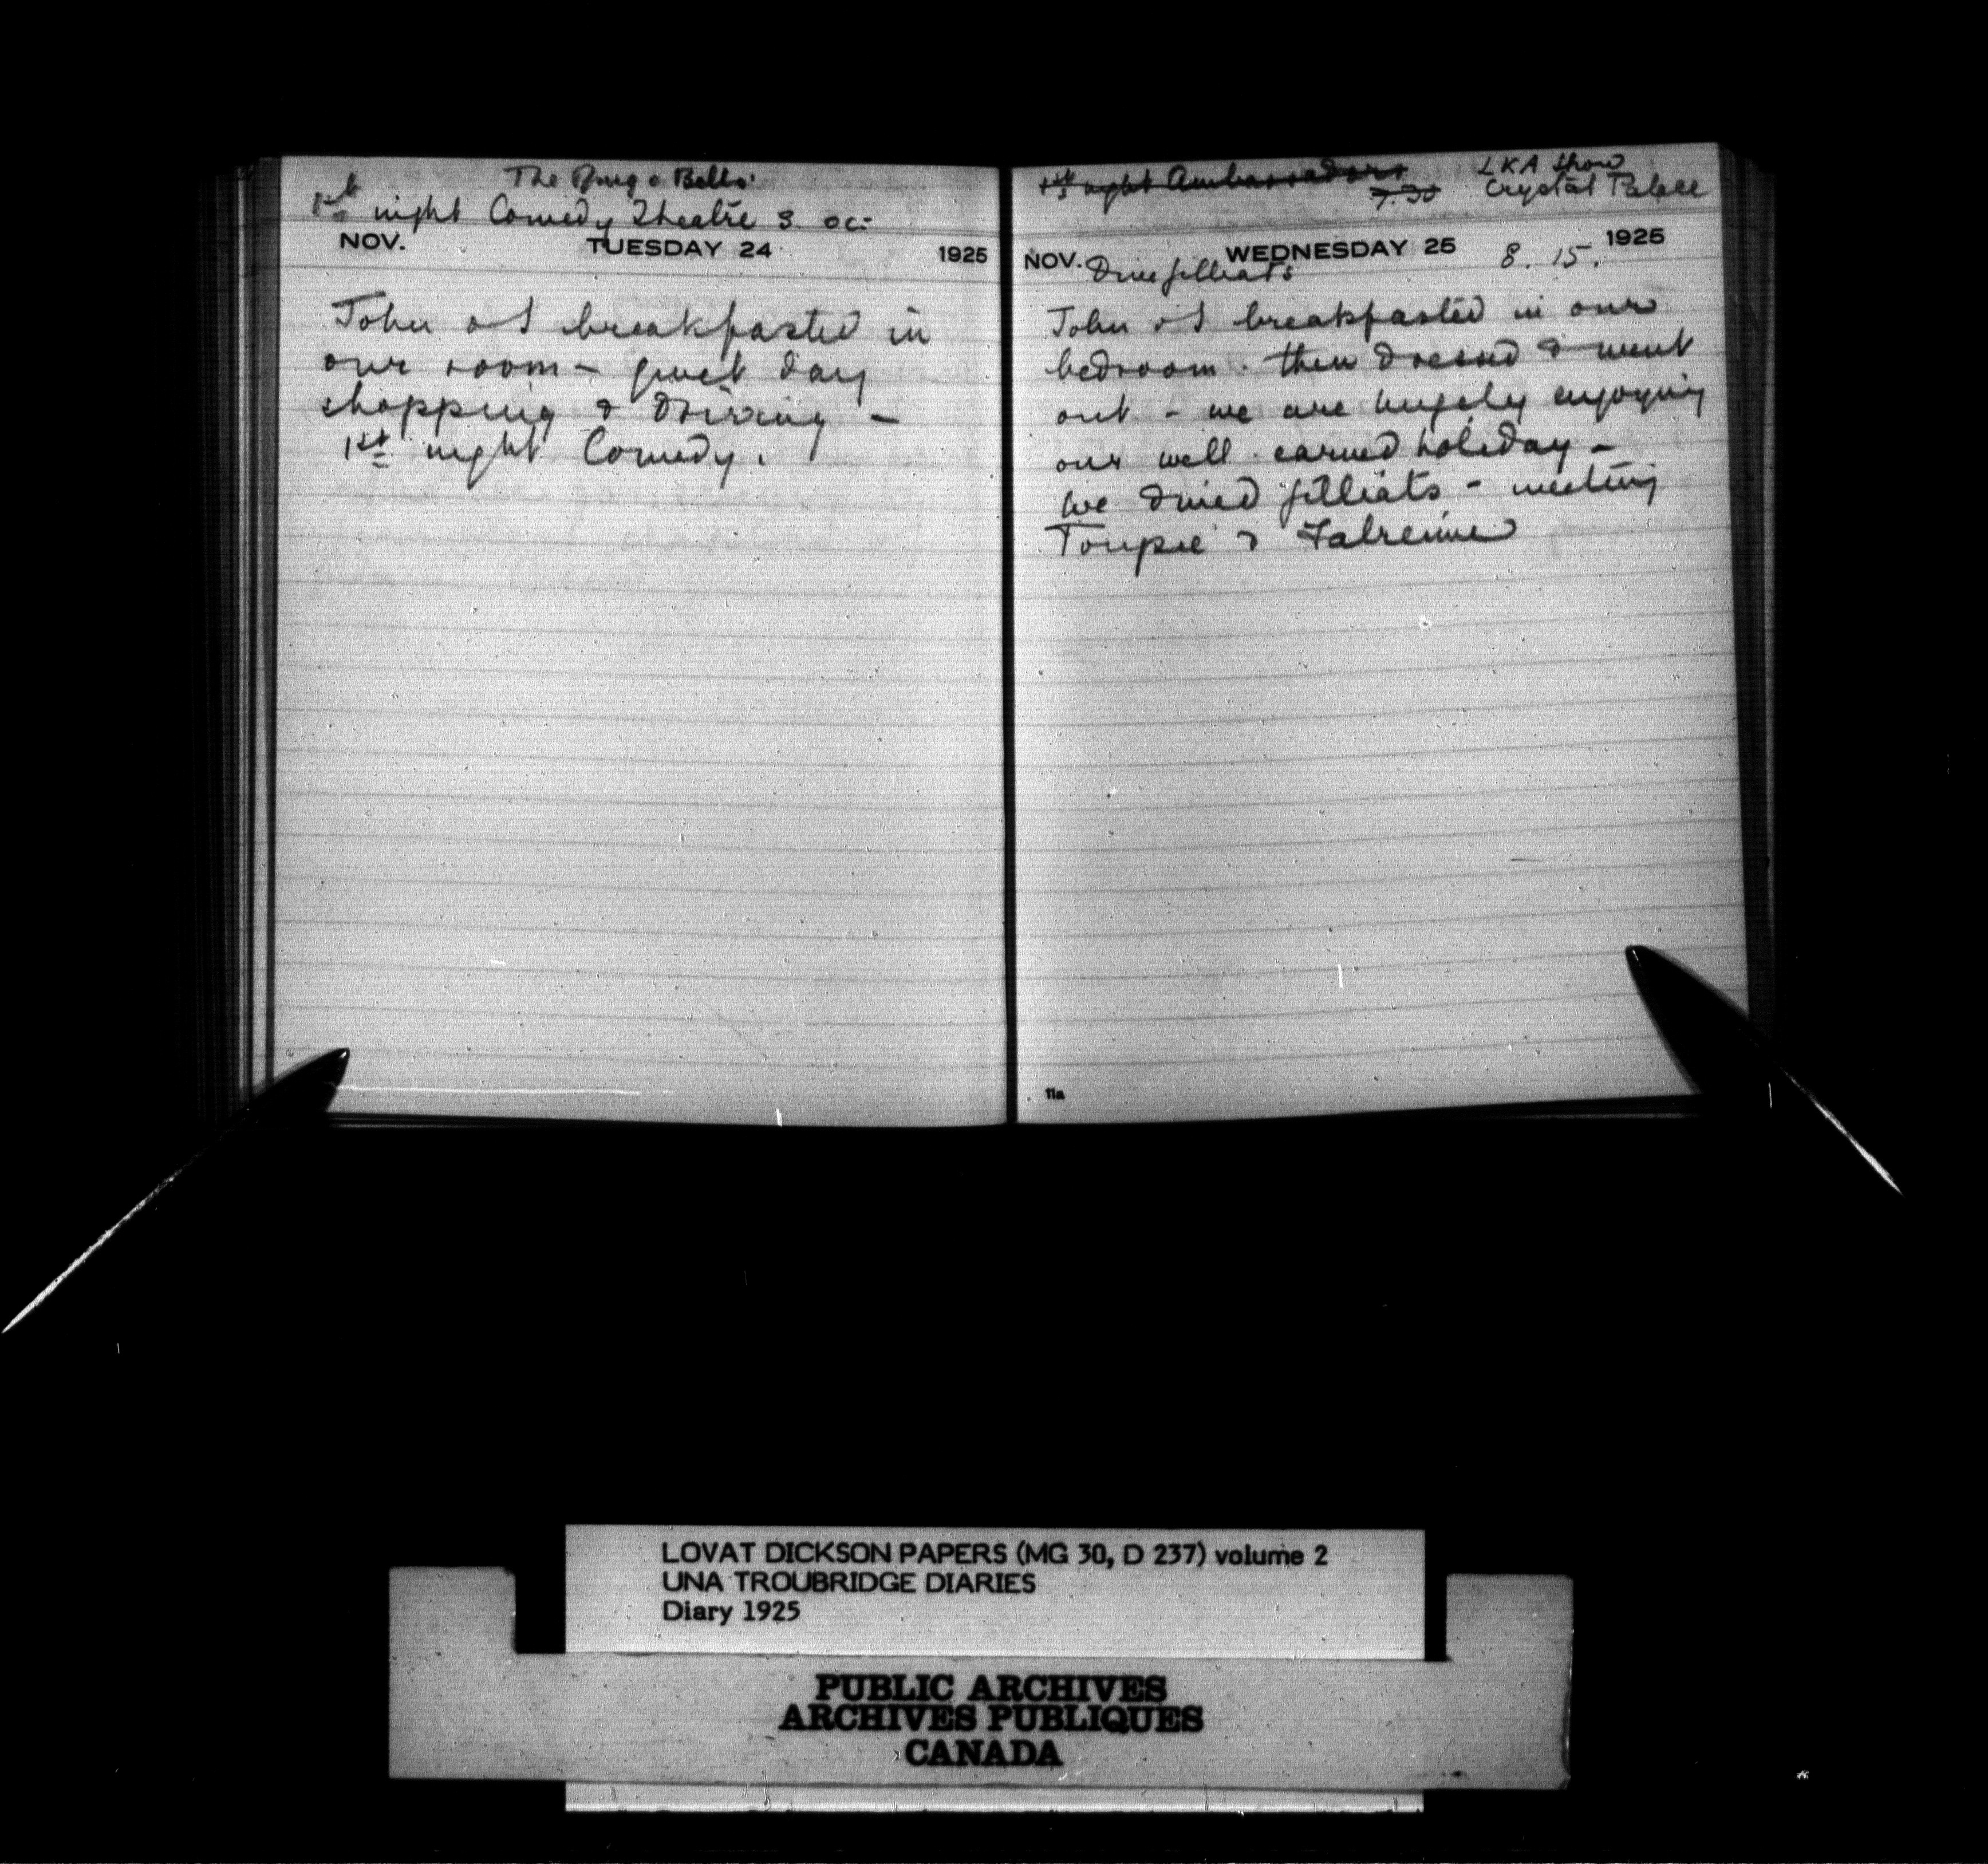 The Ring o Bells
1st night Comedy Theatre 8. oc:
NOV. TUESDAY 24 1925
John & I breakfasted in
our room – quiet day
shopping & driving –
1st night Comedy.
1st night Ambassadors
7.30
LKA Show
Crystal Palace
NOV. WEDNESDAY 25 1925
Dine Gilliats 8. 15.
John & I breakfasted in our
bedroom. then dressed & went
out – we are hugely enjoying
our well earned holiday –
We dined Gilliats – meeting
Toupie &
11a
LOVAT DICKSON PAPERS (MG 30, D 237) volume 2
UNA TROUBRIDGE DIARIES
Diary 1925
PUBLIC ARCHIVES
ARCHIVES PUBLIQUES
CANADA